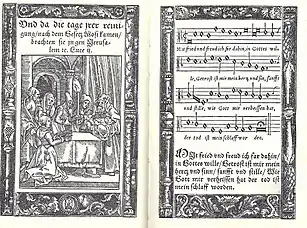 Vnd da die tage jrer reini-
gung / nach dem Gesetz Mosi kamen /
brachten sie jn gen Jerusa-
lem ꝛc. Luce ij.
Mit fried und freud ich far dahin, in Gottes wil-
le, Getrost ist mir mein hertz und sin, sanfft
und stille, wie Gott mir verheissen hat,
der tod ist mein schlaff wor den.
MIt fried vnd freud ich far dahin /
in Gottes wille / Getrost ist mir mein
hertz vnd sinn / sanfft vnd stille / Wie
Gott mir verheissen hat der tod ist
mein schlaff worden.